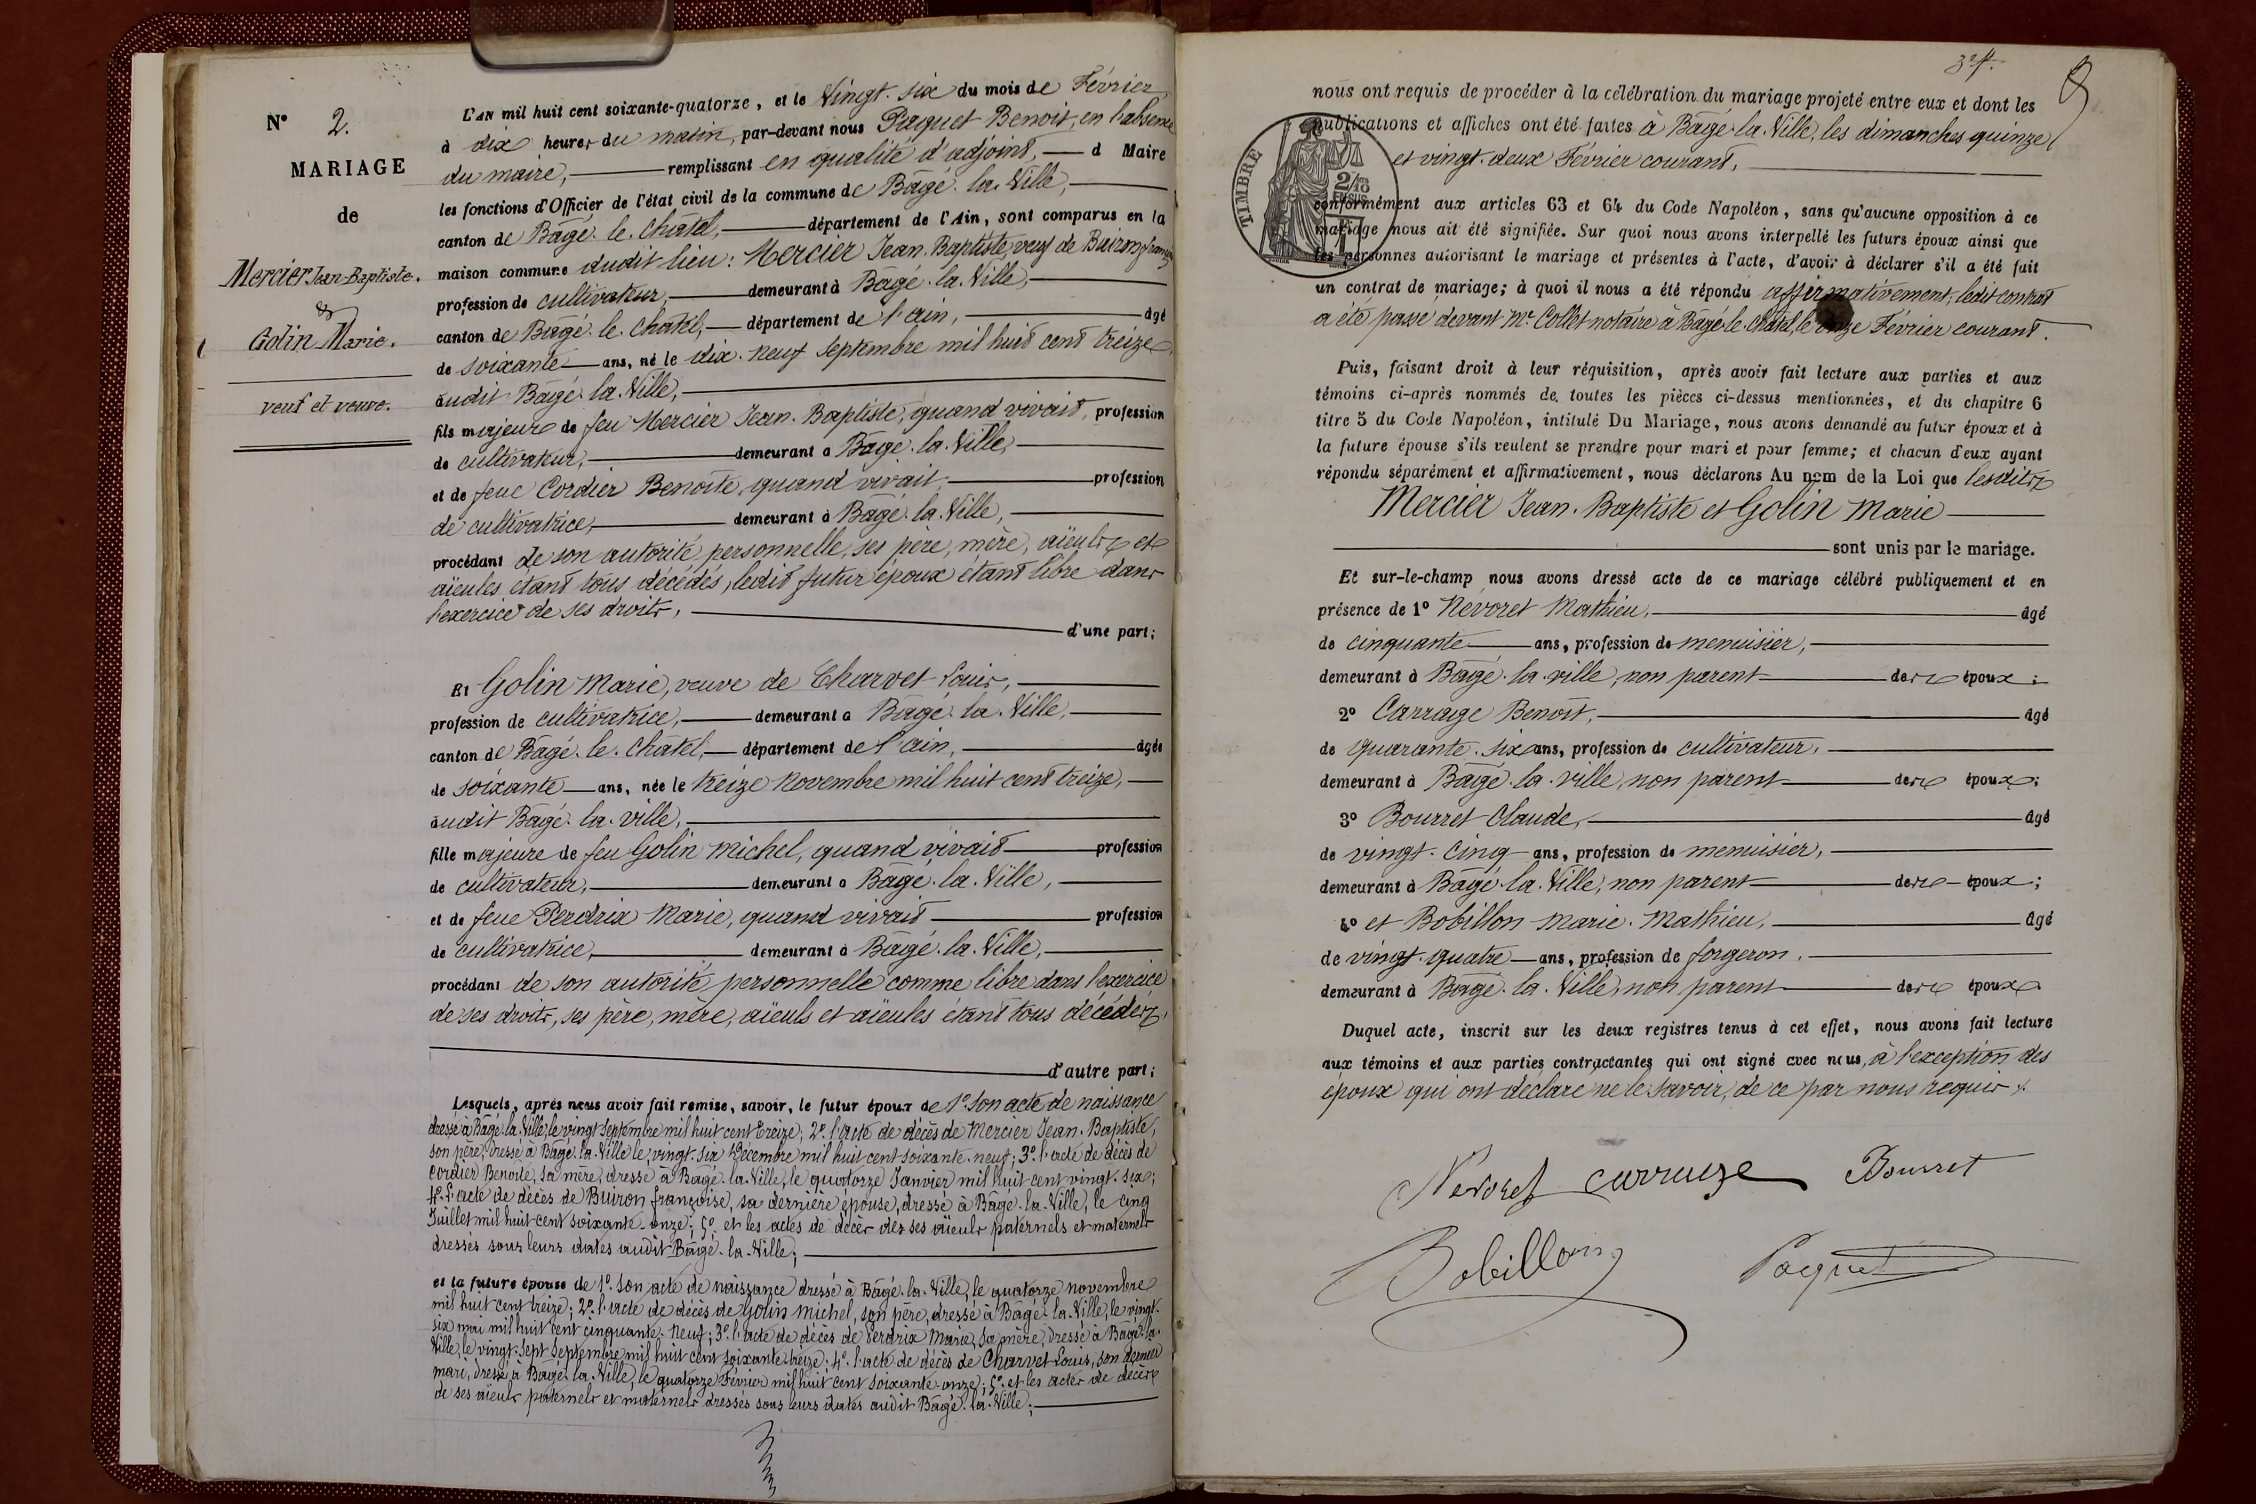 N° 2.
MARIAGE
de
Mercier Jean-Baptiste.
&
Golin Marie.
veuf et veuve.
L'AN mil huit cent soixante-quatorze, et le Vingt-six du mois de Février
à dix heures du matin, par-devant nous Paquet Benoit, en l'absence
du maire, remplissant en qualité d'adjoint, d Maire
les fonctions d'Officier de l'état civil de la commune de Bâgé-la-Ville,
canton de Bâgé-le-Châtel, département de l'Ain, sont comparus en la
maison commune dudit lieu: Mercier Jean-Baptiste, veuf de Buiron françoise
profession de cultivateur, demeurant à Bâgé-la-Ville,
canton de Bâgé-le-Châtel, département de l'ain, âgé
de soixante ans, né le dix-neuf Septembre mil huit cent treize,
audit Bâgé-la-Ville,
fils majeur de feu Mercier Jean-Baptiste, quand vivait, profession
de cultivateur, demeurant à Bâgé-la-Ville,
et de feue Cordier Benoite, quand vivait, profession
de cultivatrice, demeurant à Bâgé-la-Ville,
procédant de son autorité personnelle, ses père, mère, aïeuls et
aïeules étant tous décédés, ledit futur époux étant libre dans
l'exercice de ses droits,
d'une part;
Et Golin Marie, veuve de Charvet Louis,
profession de cultivatrice, demeurant à Bâgé-la-Ville,
canton de Bâgé-le-Châtel, département de l'ain, âgée
de soixante ans, née le treize Novembre mil huit cent treize,
audit Bâgé-la-ville,
fille majeure de feu Golin Michel, quand vivait profession
de cultivateur, demeurant à Bâgé-la-Ville,
et de feue Perdrix Marie, quand vivait profession
de cultivatrice, demeurant à Bâgé-la-Ville,
procédant de son autorité personnelle comme libre dans l'exercice
de ses droits, ses père, mère, aïeuls et aïeules étant tous décédés,
d'autre part;
Lesquels, après nous avoir fait remise, savoir, le futur époux de 1° son acte de naissance
dressé à Bâgé-la-Ville, le vingt Septembre mil huit cent treize; 2° l'acte de décès de Mercier Jean-Baptiste,
son père, dressé à Bâgé-la-Ville le, vingt-six Décembre mil huit cent soixante-neuf; 3° l'acte de décès de
Cordier Benoite, sa mère, dressé à Bâgé-la-Ville, le quatorze Janvier mil huit cent vingt-six;
4° l'acte de décès de Buiron françoise, sa dernière épouse, dressé à Bâgé-la-Ville, le cinq
Juillet mil huit cent soixante-onze; 5° et les actes de décès des ses aïeuls paternels et maternels
dressés sous leurs dates audit Bâgé-la-Ville;
et la future épouse de 1° son acte de naissance dressé à Bâgé-la-Ville, le quatorze novembre
mil huit cent treize; 2° l'acte de décès de Golin Michel, son père, dressé à Bâgé-la-Ville, le vingt-
six mai mil huit cent cinquante-neuf; 3° l'acte de décès de Perdrix Marie, sa mère, dressé à Bâgé-la-
Ville, le vingt-sept Septembre mil huit cent soixante-treize; 4° l'acte de décès de Charvet Louis, son dernier
mari, dressé à Bâgé-la-Ville, le quatorze Février mil huit cent soixante-onze; 5° et les actes de décès
de ses aïeuls paternels et maternels dressés sous leurs dates audit Bâgé-la-Ville;
nous ont requis de procéder à la célébration du mariage projeté entre eux et dont les
publications et affiches ont été faites à Bâgé-la-Ville, les dimanches quinze
et vingt-deux Février courant,
TIMBRE
2/10
EN SUS
conformément aux articles 63 et 64 du Code Napoléon, sans qu'aucune opposition à ce
mariage nous ait été signifiée. Sur quoi nous avons interpellé les futurs époux ainsi que
les personnes autorisant le mariage et présentes à l'acte, d'avoir à déclarer s'il a été fait
un contrat de mariage; à quoi il nous a été répondu affirmativement, ledit contrat
a été passé devant Mr Collet notaire à Bâgé-le-Châtel, le onze Février courant.
Puis, faisant droit à leur réquisition, après avoir fait lecture aux parties et aux
témoins ci-après nommés de toutes les pièces ci-dessus mentionnées, et du chapitre 6
titre 5 du Code Napoléon, intitulé Du Mariage, nous avons demandé au futur époux et à
la future épouse s'ils veulent se prendre pour mari et pour femme; et chacun d'eux ayant
répondu séparément et affirmativement, nous déclarons Au nom de la Loi que lesdits
Mercier Jean-Baptiste et Golin Marie
sont unis par le mariage.
Et sur-le-champ nous avons dressé acte de ce mariage célébré publiquement et en
présence de 1° Névoret Mathieu, âgé
de cinquante ans, profession de menuisier,
demeurant à Bâgé-la-ville, non parent des époux;
2° Carrage Benoit, âgé
de quarante-six ans, profession de cultivateur,
demeurant à Bâgé-la-ville, non parent des époux;
3° Bourret Claude, âgé
de vingt-cinq ans, profession de menuisier,
demeurant à Bâgé-la-Ville, non parent des époux;
4° et Bobillon Marie-Mathieu, âgé
de vingt-quatre ans, profession de forgeron,
demeurant à Bâgé-la-Ville, non parent des époux.
Duquel acte, inscrit sur les deux registres tenus à cet effet, nous avons fait lecture
aux témoins et aux parties contractantes qui ont signé avec nous, à l'exception des
époux qui ont déclaré ne le savoir, de ce par nous requis.
Nevoret Carruge Bourret
Bobillon Paquet